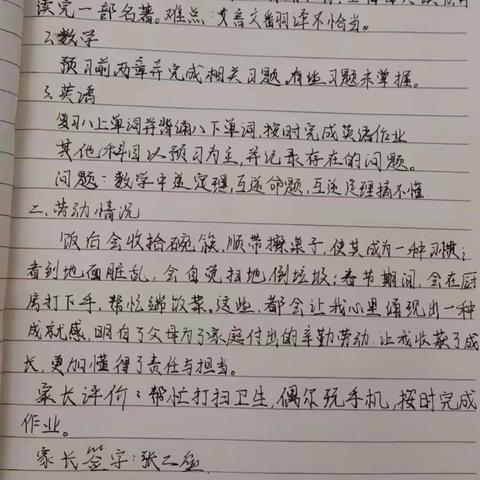 读完一部名著。难点:文言文翻译不恰当。
2.数学
预习前两章并完成相关习题,有些习题未掌握。
3.英语
复习八上单词并背诵八下单词,按时完成英语作业
其他科目以预习为主,并记录存在的问题。
问题:数学中逆定理,互逆命题,互逆定理搞不懂.
二、劳动情况
饭后会收拾碗筷,顺带擦桌子,使其成为一种习惯;
看到地面脏乱,会自觉扫地倒垃圾;春节期间,会在厨
房打下手,帮忙端饭菜。这些,都会让我心里涌现出一种
成就感,明白了父母为了家庭付出的辛勤劳动.让我收获了成
长,更加懂得了责任与担当。
家长评价:帮忙打扫卫生,偶尔玩手机,按时完成
作业。
家长签字:张